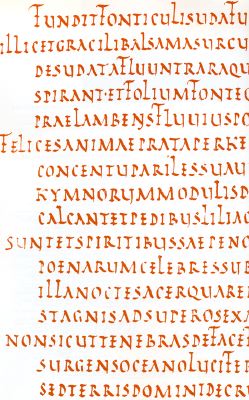 FUNDITFONTICULISUDAFU
ILLICETGRACILIBALSAMASURCU
DESUDATAFLUUNTRARAQU
SPIRANTETFOLIUMFONTEQ
PRAELAMBENSFLUUIUSPO
FELICESANIMAEPRATAPERHE
CONCENTUPARILESSUAU
HYMNORUMMODULISD
CALCANTETPEDIBUSLILIAC
SUNTETSPIRITIBUSSAEPENO
POENARUMCELEBRESSUB
ILLANOCTESACERQUARE
STAGNISADSUPEROSEXA
NONSICUTTENEBRASDEFACEF
SURGENSOCEANOLUCIFER
SEDTERRISDOMINIDECR